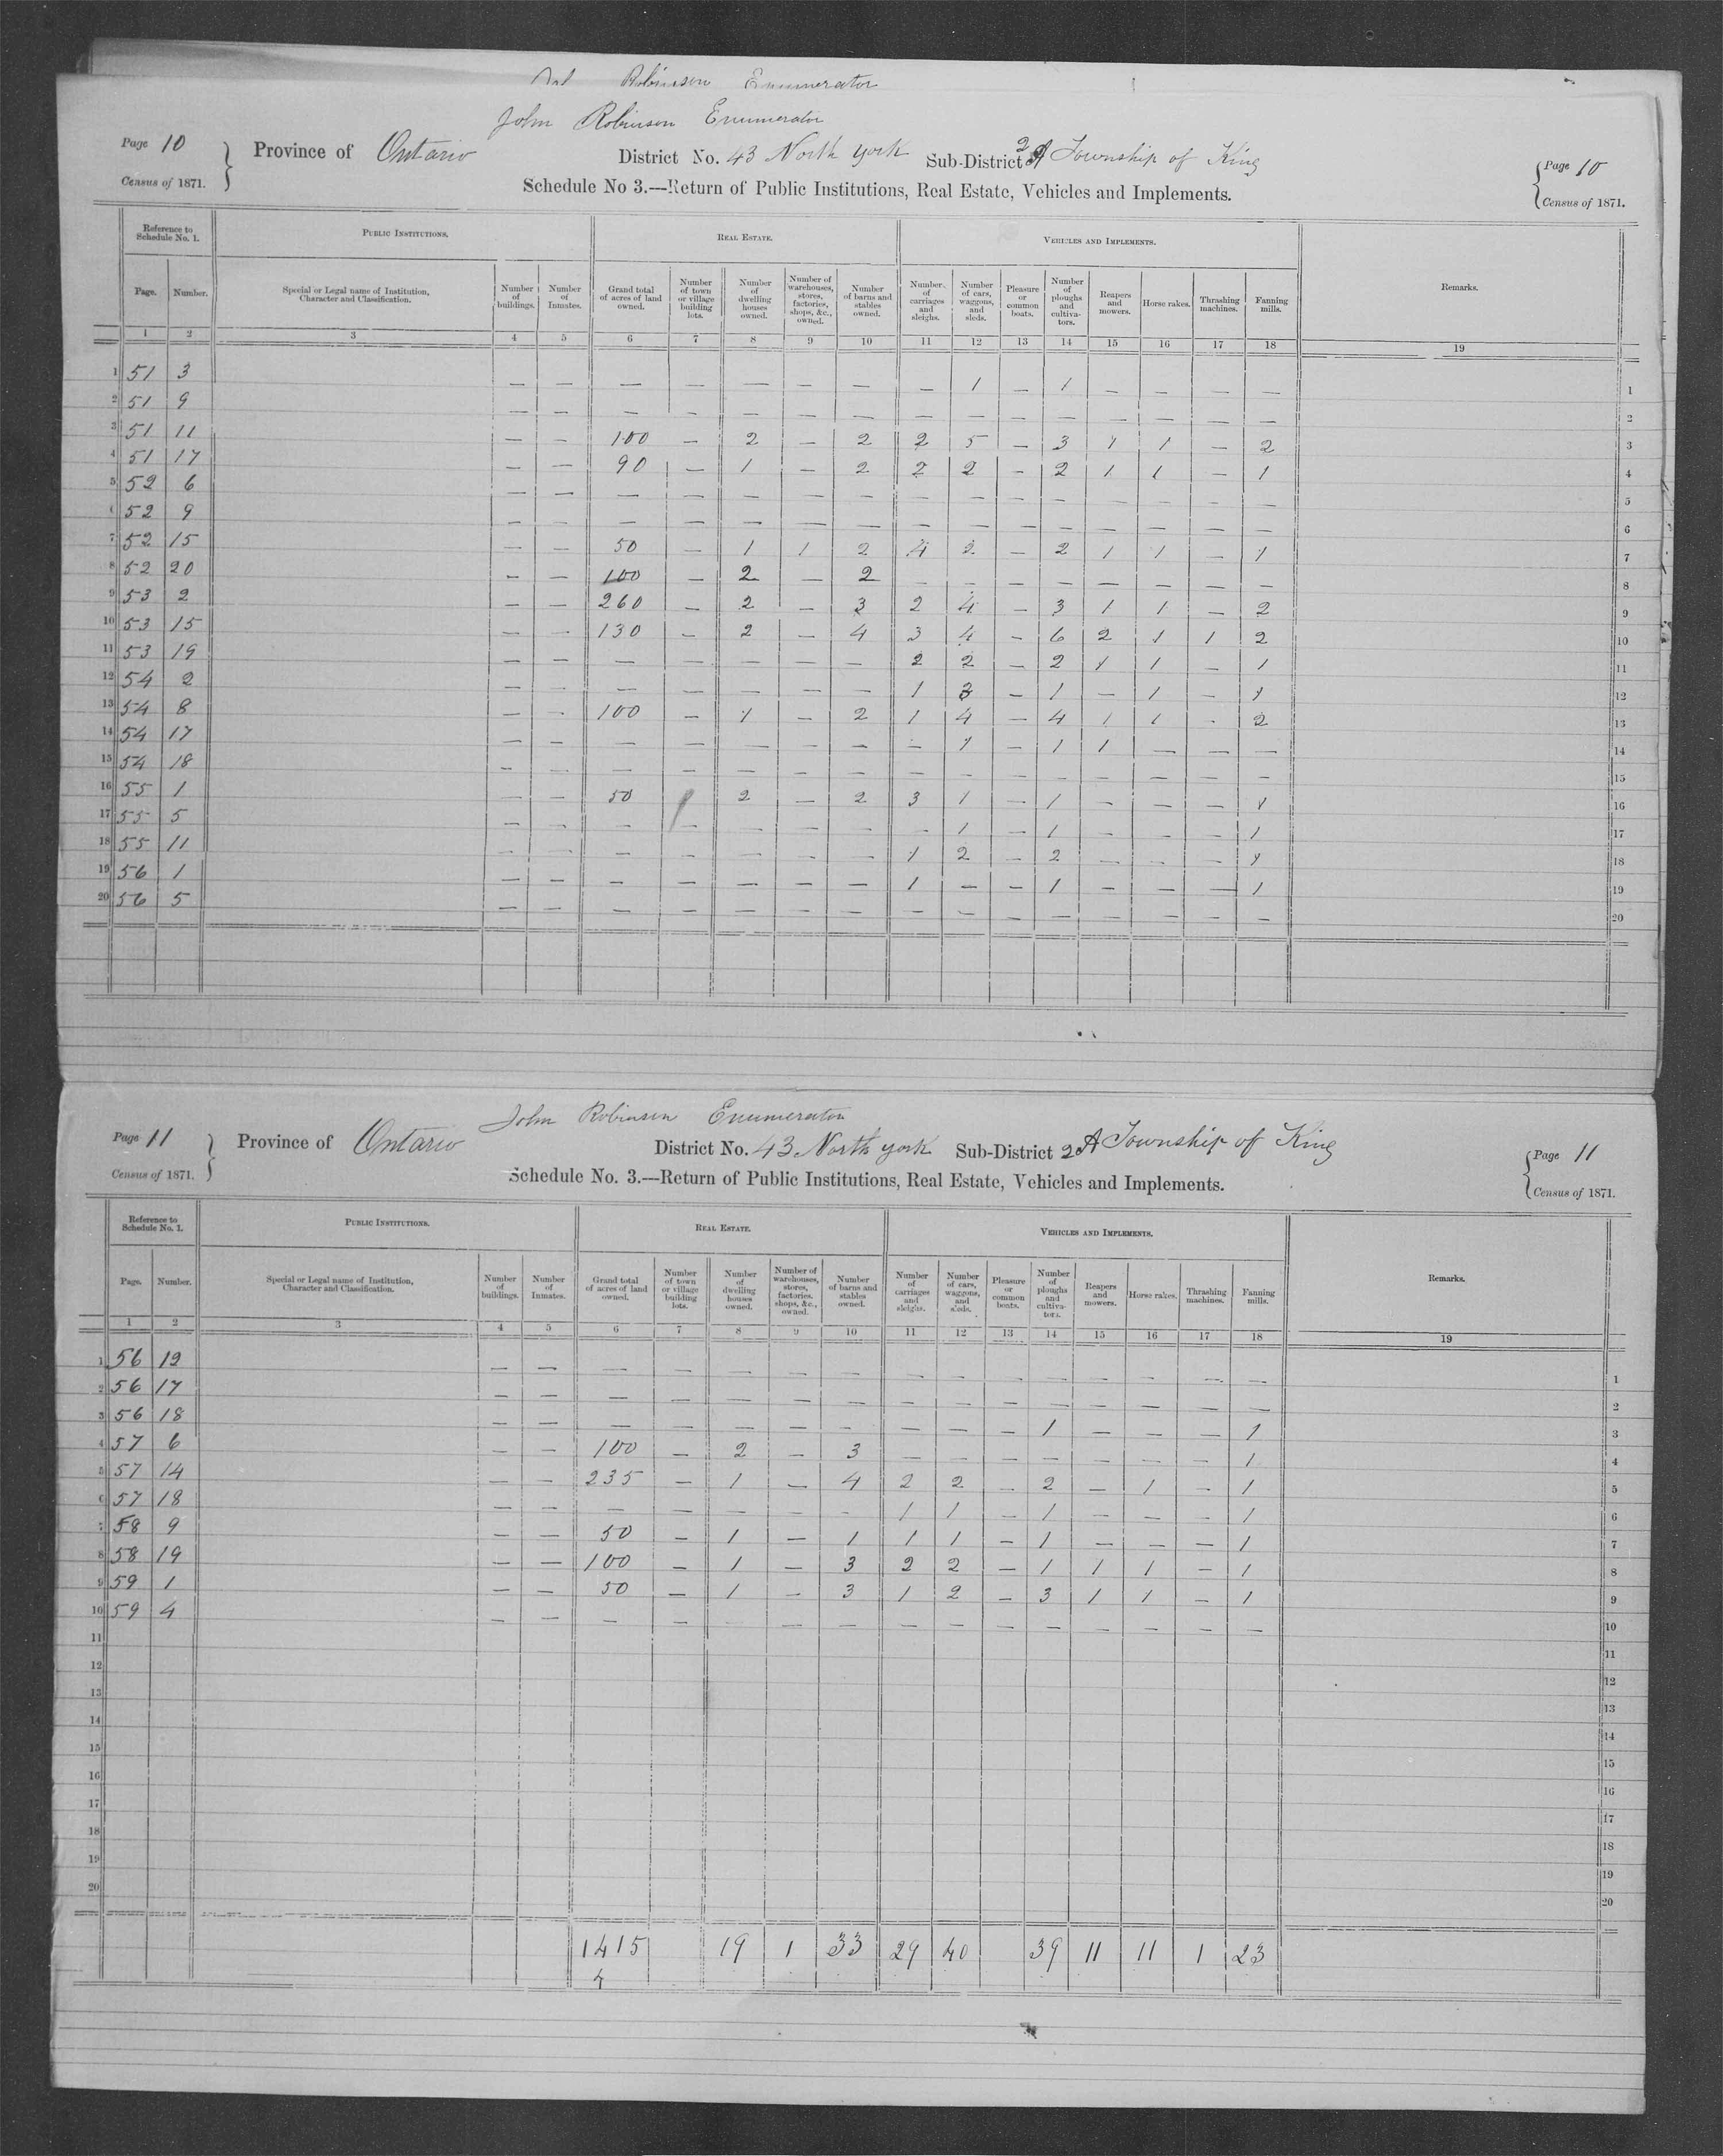 Robinson Enumerator
John Robinson Enumerator
Page 10 Province of Ontario District No. 43 North York Sub-District 2 A Township of King Page 10
Census of 1871. Census of 1871.
Schedule No 3.—Return of Public Institutions, Real Estate, Vehicles and Implements.
Reference to Schedule No. 1. PUBLIC INSTITUTIONS. REAL ESTATE. VEHICLES AND IMPLEMENTS. Remarks.
Page. Number. Special or Legal name of Institution, Character and Classification. Number of buildings. Number of Inmates. Grand total of acres of land owned. Number of town or village building lots. Number of dwelling houses owned. Number of warehouses, stores, factories, shops, &c., owned. Number of barns and stables owned. Number of carriages and sleighs. Number of cars, waggons, and sleds. Pleasure or common boats. Number of ploughs and cultivators. Reapers and mowers. Horse rakes. Thrashing machines. Fanning mills.
1 2 3 4 5 6 7 8 9 10 11 12 13 14 15 16 17 18 19
1 51 3 — — — — — — — — 1 — 1 — — — — 1
2 51 9 — — — — — — — — — — — — — — — 2
3 51 11 — — 100 — 2 — 2 2 5 — 3 1 1 — 2 3
4 51 17 — — 90 — 1 — 2 2 2 — 2 1 1 — 1 4
5 52 6 — — — — — — — — — — — — — — — 5
6 52 9 — — — — — — — — — — — — — — — 6
7 52 15 — — 50 — 1 1 2 4 2 — 2 1 1 — 1 7
8 52 20 — — 100 — 2 — 2 — — — — — — — — 8
9 53 2 — — 260 — 2 — 3 2 4 — 3 1 1 — 2 9
10 53 15 — — 130 — 2 — 4 3 4 — 6 2 1 1 2 10
11 53 19 — — — — — — — 2 2 — 2 1 1 — 1 11
12 54 2 — — — — — — — 1 3 — 1 — 1 — 1 12
13 54 8 — — 100 — 1 — 2 1 4 — 4 1 1 — 2 13
14 54 17 — — — — — — — — 1 — 1 1 — — — 14
15 54 18 — — — — — — — — — — — — — — — 15
16 55 1 — — 50 1 2 — 2 3 1 — 1 — — — 1 16
17 55 5 — — — — — — — — 1 — 1 — — — 1 17
18 55 11 — — — — — — — 1 2 — 2 — — — 1 18
19 56 1 — — — — — — — 1 — — 1 — — — 1 19
20 56 5 — — — — — — — — — — — — — — — 20
John Robinson Enumerator
Page 11 Province of Ontario District No. 43 North York Sub-District 2 A Township of King Page 11
Census of 1871. Census of 1871.
Schedule No. 3.—Return of Public Institutions, Real Estate, Vehicles and Implements.
Reference to Schedule No. 1. PUBLIC INSTITUTIONS. REAL ESTATE. VEHICLES AND IMPLEMENTS. Remarks.
Page. Number. Special or Legal name of Institution, Character and Classification. Number of buildings. Number of Inmates. Grand total of acres of land owned. Number of town or village building lots. Number of dwelling houses owned. Number of warehouses, stores, factories. shops, &c., owned. Number of barns and stables owned. Number of carriages and sleighs. Number of cars, waggons, and sleds. Pleasure or common boats. Number of ploughs and cultivators. Reapers and mowers. Horse rakes. Thrashing machines. Fanning mills.
1 2 3 4 5 6 7 8 9 10 11 12 13 14 15 16 17 18 19
1 56 12 — — — — — — — — — — — — — — — 1
2 56 17 — — — — — — — — — — — — — — — 2
3 56 18 — — — — — — — — — — 1 — — — 1 3
4 57 6 — — 100 — 2 — 3 — — — — — — — 1 4
5 57 14 — — 235 — 1 — 4 2 2 — 2 — 1 — 1 5
6 57 18 — — — — — — — 1 1 — 1 — — — 1 6
7 58 9 — — 50 — 1 — 1 1 1 — 1 — — — 1 7
8 58 19 — — 100 — 1 — 3 2 2 — 1 1 1 — 1 8
9 59 1 — — 50 — 1 — 3 1 2 — 3 1 1 — 1 9
10 59 4 — — — — — — — — — — — — — — — 10
11 11
12 12
13 13
14 14
15 15
16 16
17 17
18 18
19 19
20 20
1415 19 1 33 29 40 39 11 11 1 23
4